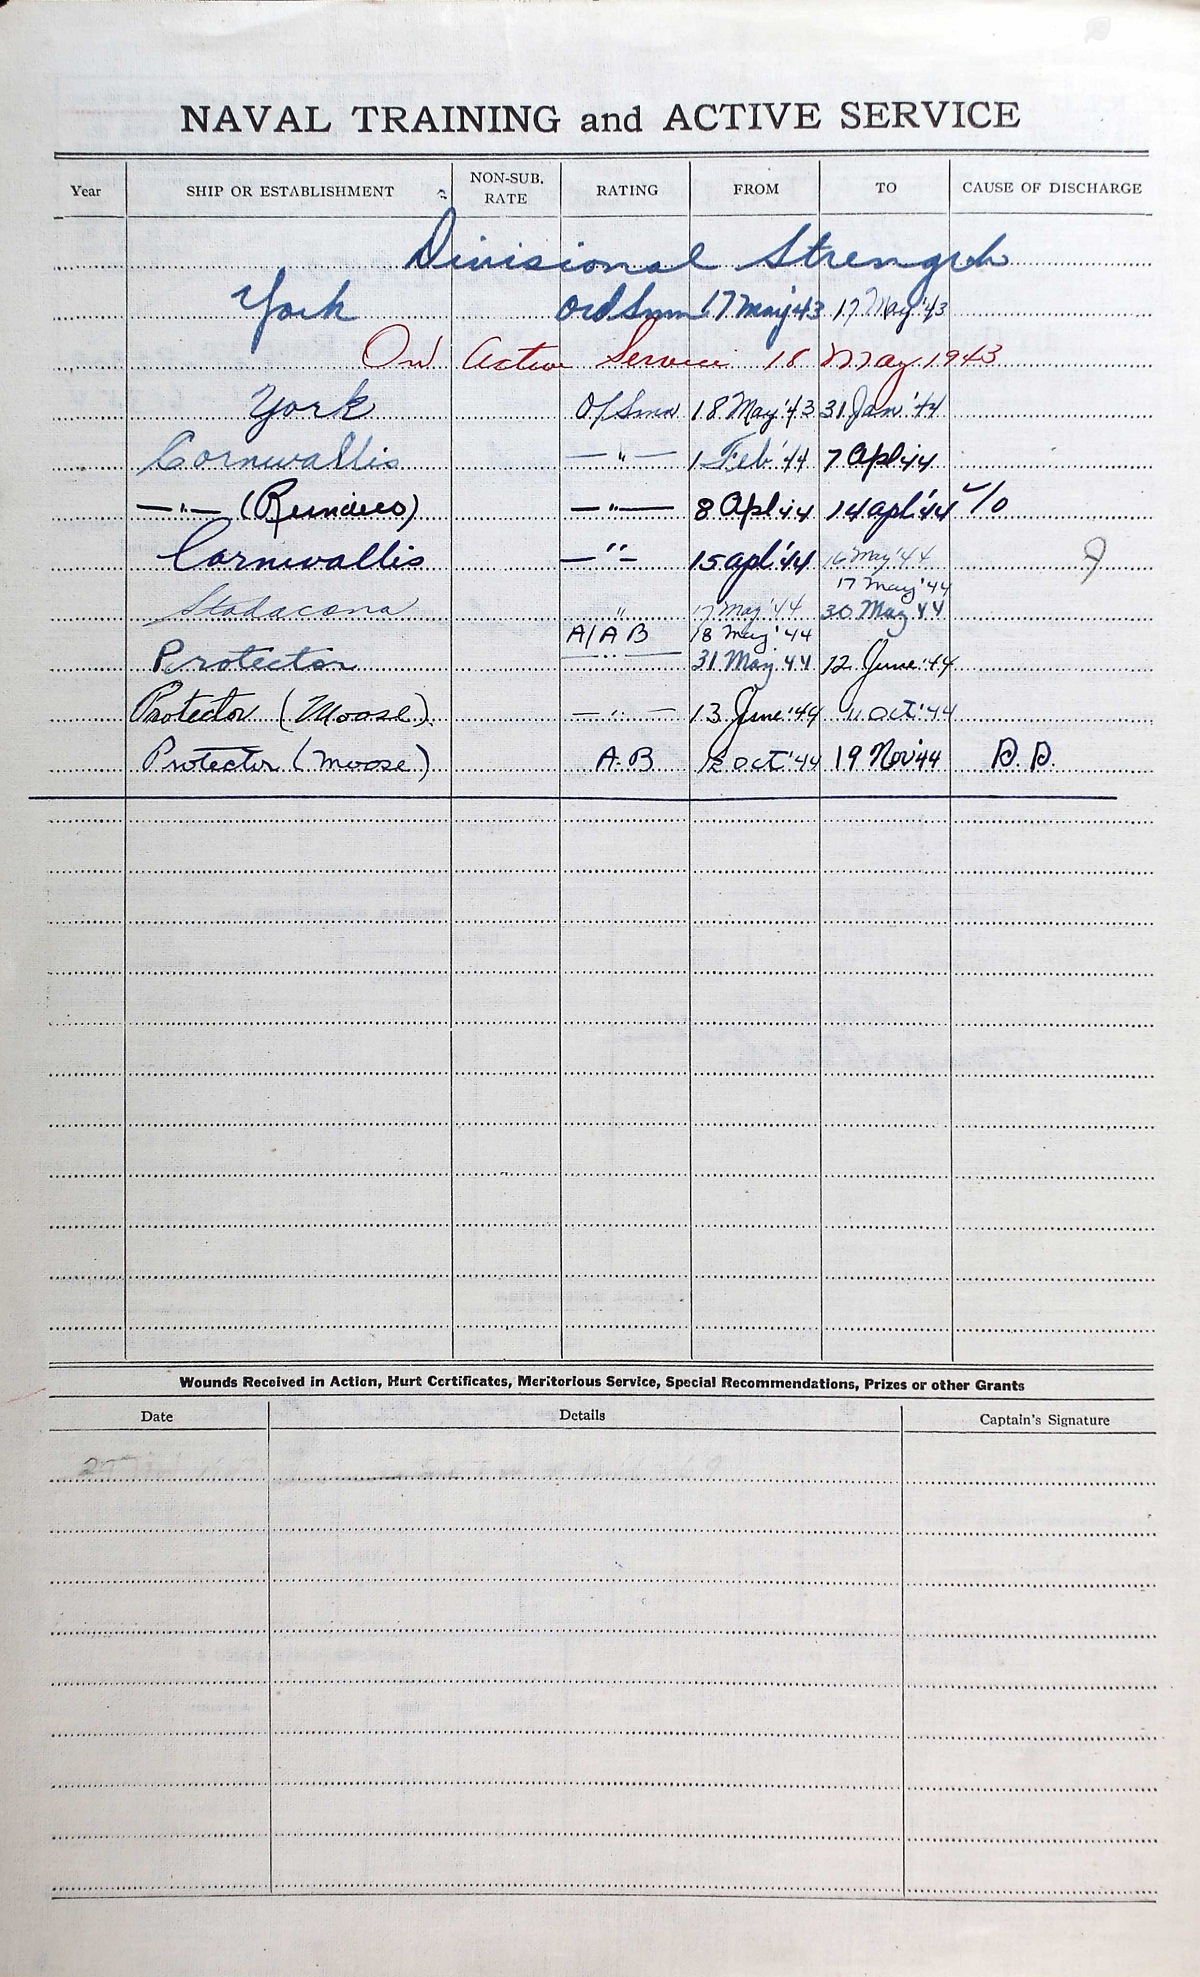 NAVAL TRAINING and ACTIVE SERVICE
Year SHIP OR ESTABLISHMENT NON-SUB. RATE RATING FROM TO CAUSE OF DISCHARGE
Divisional Strength
York Ord Smn 17 May '43 17 May '43
On Active Service 18 May 1943
York O/Smn 18 May '43 31 Jan '44
Cornwallis —"— 1 Feb '44 7 Apl 44
—"— —"— 8 Apl 44 14 apl '44
Cornwallis —"— 15 apl '44 16 May '44
17 May '44
Stadacona " 17 May '44 30 May 44
A/AB 18 May '44
Protector —"— 31 May 44 12 June '44
Protector (Moose) —"— 13 June '44 11 Oct '44
Protector (Moose) A.B 12 Oct '44 19 Nov '44 D.D.
Wounds Received in Action, Hurt Certificates, Meritorious Service, Special Recommendations, Prizes or other Grants
Date Details Captain's Signature